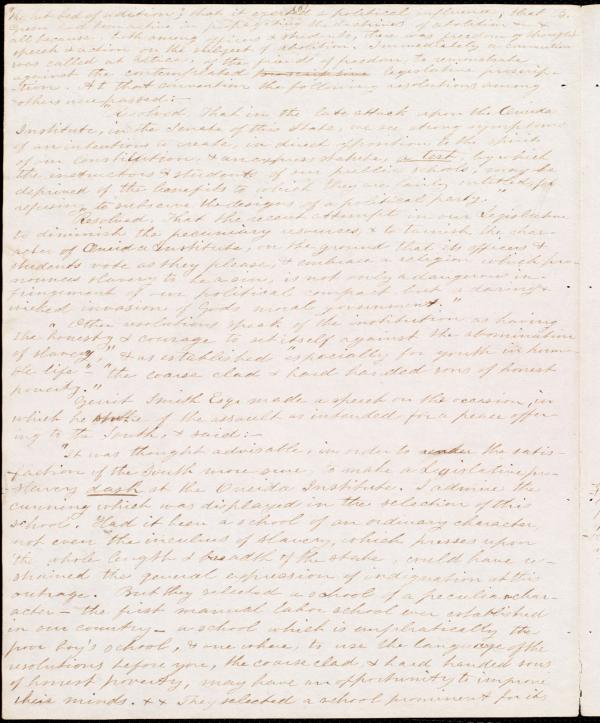 "the hot bed of sedition," that it exerted a political influence, that
Green had been active in propagating the doctrines of abolition, & &
all because, both among officers & students, there was freedom of thought
speech & action on the subject of abolition. Immediately a convention
was called at Utica, of the friends of freedom, to remonstrate
against the contemplated legislative proscrip-
tion. At that convention the following resolutions among
others were passed:-
"Resolved, That in the late attack upon the Oneida
Institute, in the Senate of this State, we see strong symptoms
of an intention to create, in direct opposition to the spirit
of our Constitution, & an express statute, a test, by which
the instructors & students of our public schools, may be
deprived of the benefits to which they are fairly entitled, for
refusing to subserve the designs of a political party."
"Resolved, That the recent attempt in our Legislature
to diminish the pecuniary resources, & to tarnish the char-
acter of Oneida Institute, on the ground that its officers &
students vote as they please, & embrace a religion which pro-
nounces slavery to be a sin, is not only a dangerous in-
fringement of our political compact but a daring &
wicked invasion of God's moral government."
Other resolutions speak of the institution as having
"the honesty & courage to set itself against the abomination
of slavery," & as established especially for youth in hum-
ble life" - "the coarse clad & hard handed sons of honest
poverty."
Gerrit Smith Esqr made a speech on the occasion, in
which he of the assault as intended for a peace offer-
ing to the South, & said:-
"It was thought advisable, in order to the satis-
faction of the South more sure, to make a Legislative pro-
slavery dash at the Oneida Institute. I admire the
cunning which was displayed in the selection of this
school. Had it been a school of an ordinary character,
not even the incubus of slavery, which presses upon
the whole length & breadth of the state, could have re-
strained the general expression of indignation at this
outrage. But they selected a school of a peculiar char-
acter - the first manual labor school ever established
in our country - a school which is emphatically the
poor boy's school, & one where, to use the language of the
resolutions before you, the coarse clad & hard handed sons
of honest poverty, may have an opportunity to improve
their minds. & & They selected a school prominent for its